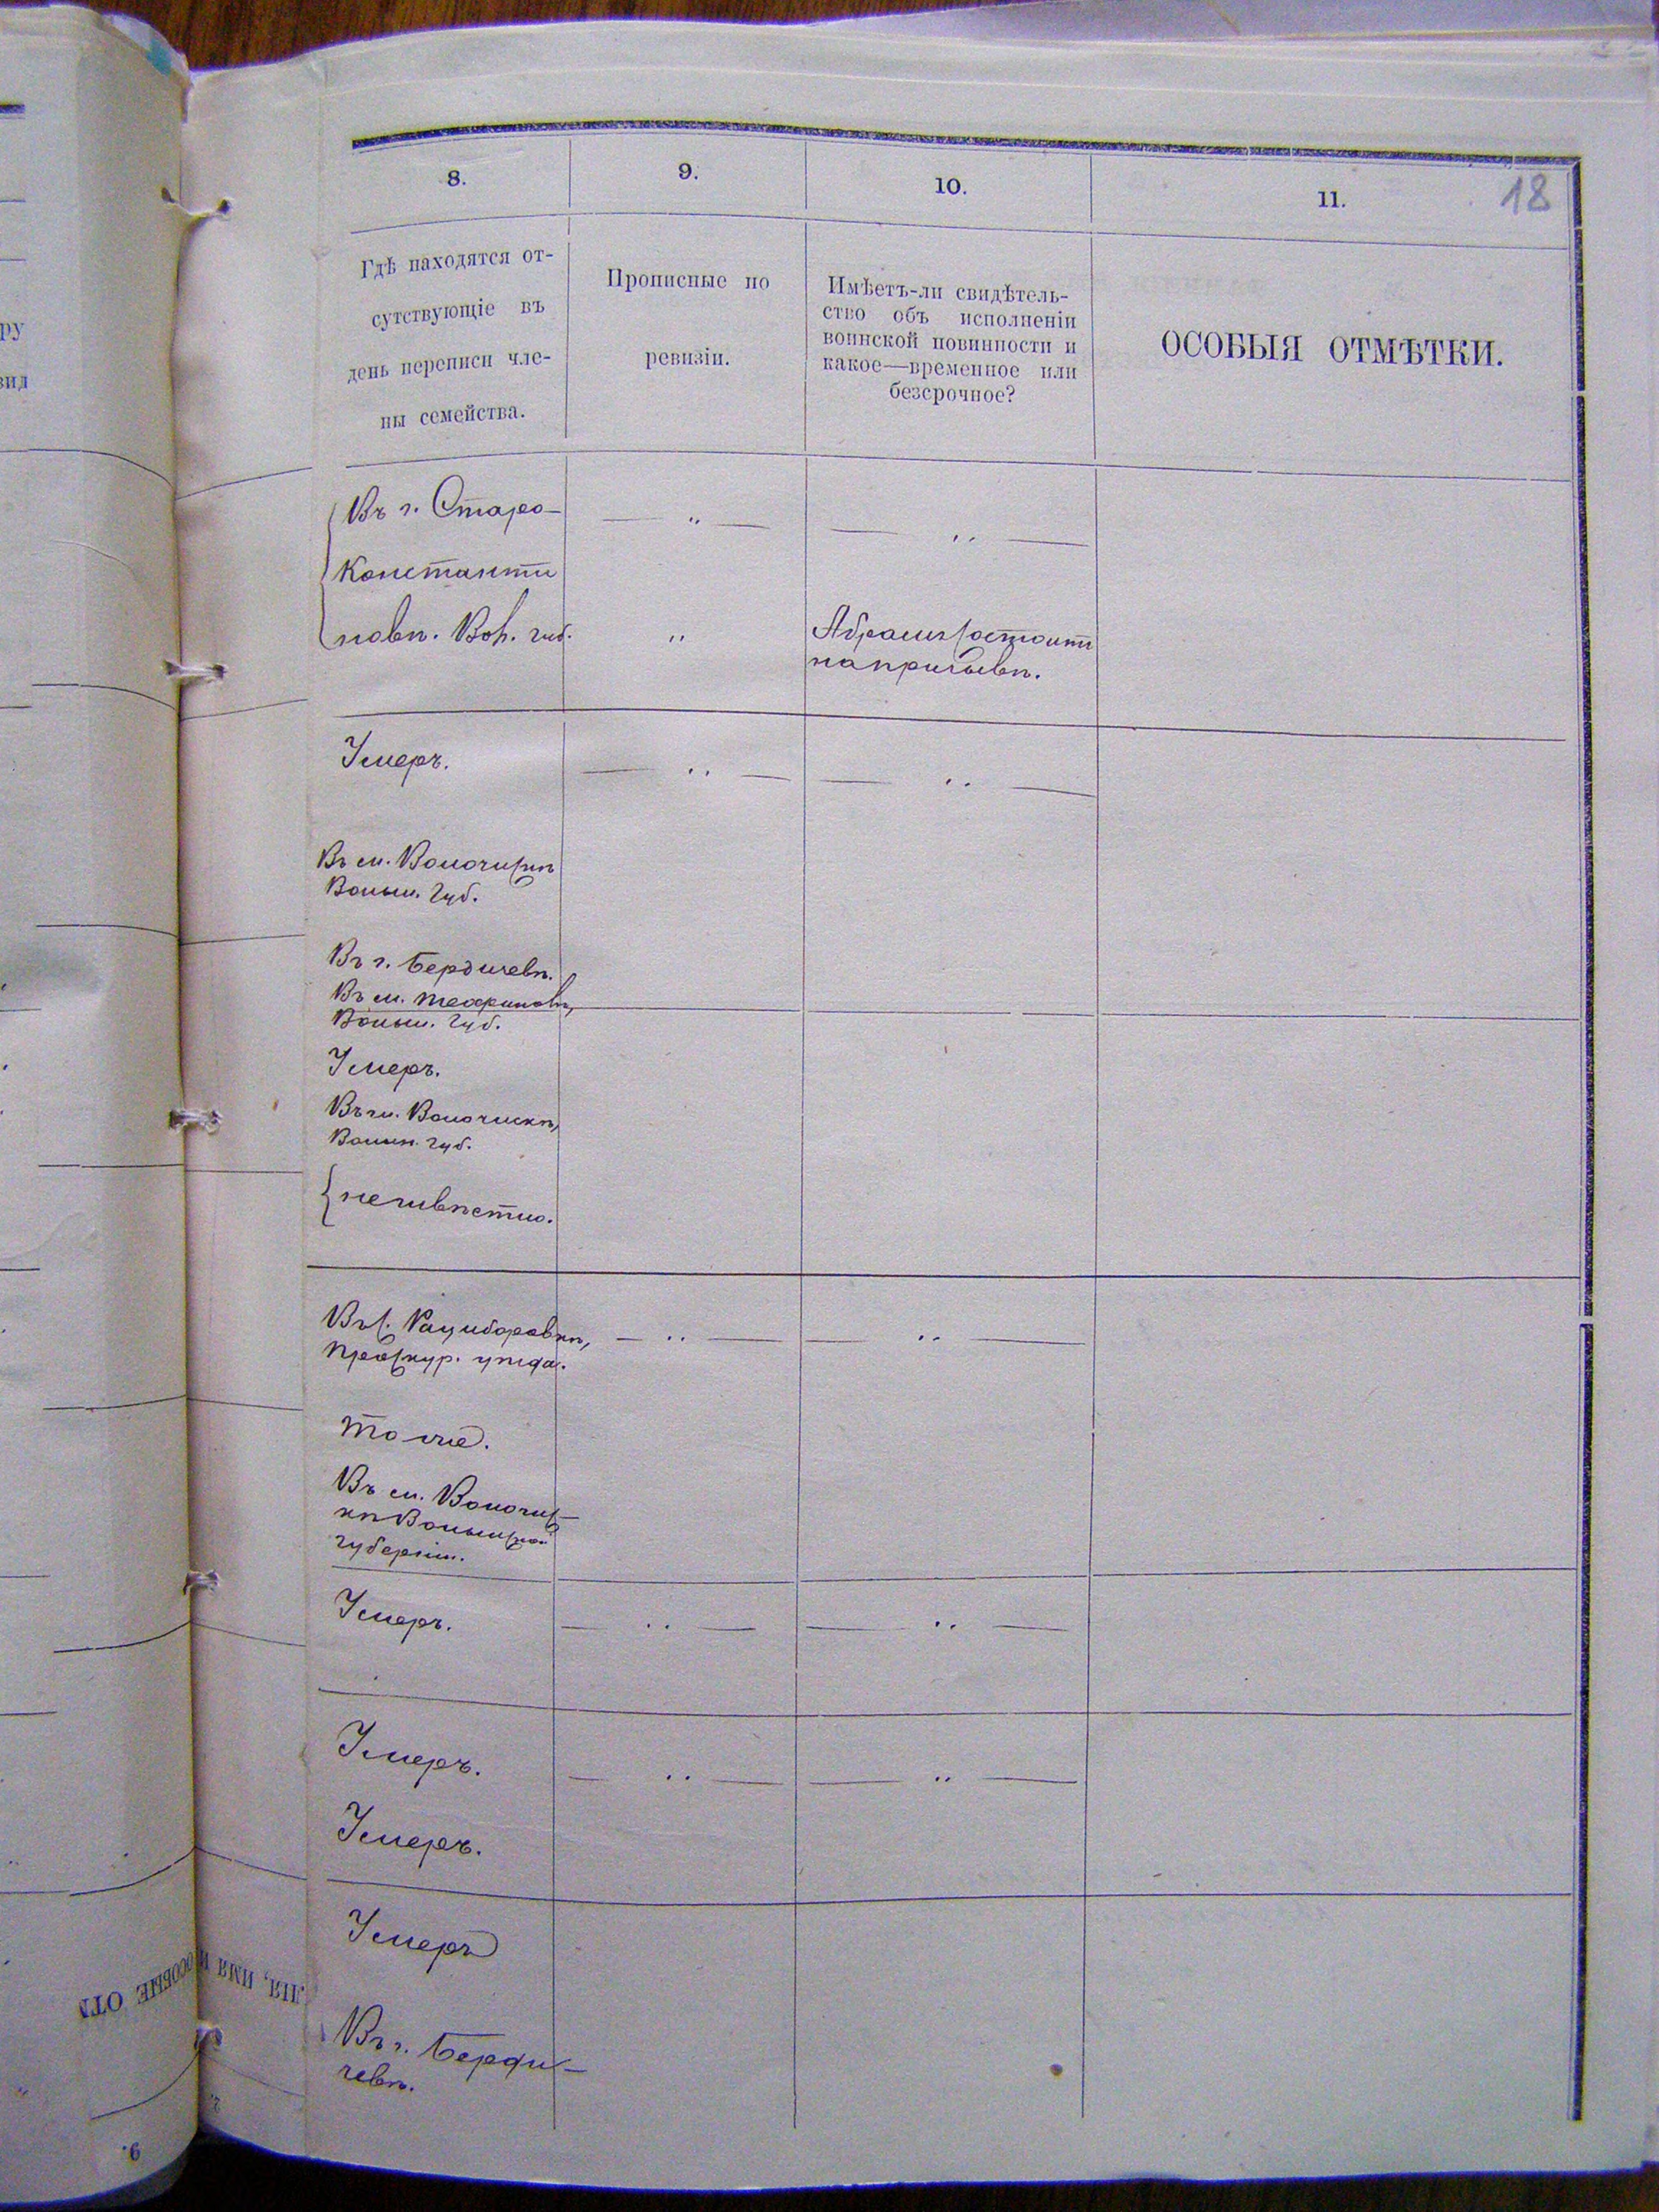 18
8.
9.
10.
11.
Гдѣ находятся от-
сутствующіе въ
день переписи чле-
ны семейства.
Прописные по
ревизіи.
Имѣетъ-ли свидѣтель-
ство объ исполненіи
воинской повинности и
какое—временное или
безсрочное?
ОСОБЫЯ ОТМѢТКИ.
Въ г. Старо-
Константи
новѣ. Вол. губ.
Абрамъ состоитъ
на призывѣ.
Умеръ.
Въ м. Волочискѣ
Волын. губ.
Въ г. Бердичевѣ.
Въ м. Теофиповѣ,
Волын. губ.
Умеръ.
Въ м. Волочискѣ,
Волын. губ.
неизвѣстно.
Въ с. Рациборовкѣ,
Проскур. уѣзда.
Тоже.
Въ м. Волочис-
кѣ Волынской
губерніи.
Умеръ.
Умеръ.
Умеръ.
Умеръ
Въ г. Берди-
чевѣ.
ЛІЯ, ИМЯ И
ОСОБЫЕ ОТМ
9.